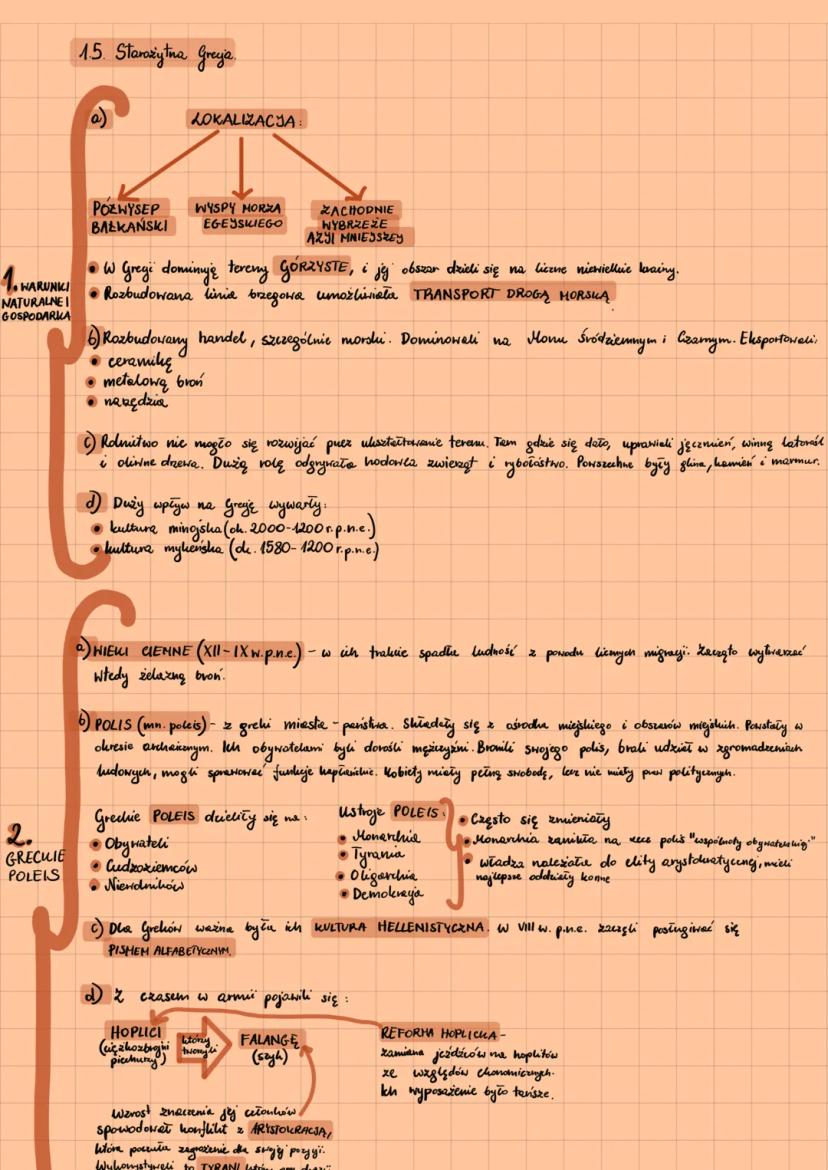 1.5. Starożytna Grecja.
a) LOKALIZACJA:
PÓŁWYSEP BAŁKAŃSKI
WYSPY MORZA EGEJSKIEGO
ZACHODNIE WYBRZEŻE AZJI MNIEJSZEJ
1. WARUNKI NATURALNE I GOSPODARKA
• W Grecji dominują tereny GÓRZYSTE, i jej obszar dzieli się na liczne niewielkie krainy.
• Rozbudowana linia brzegowa umożliwiała TRANSPORT DROGĄ MORSKĄ
b) Rozbudowany handel, szczególnie morski. Dominowali na Morzu Śródziemnym i Czarnym. Eksportowali:
• ceramikę
• metalową broń
• narzędzia
c) Rolnictwo nie mogło się rozwijać przez ukształtowanie terenu. Tam gdzie się dało, uprawiali jęczmień, winną latorośl
i oliwne drzewa. Dużą rolę odgrywała hodowla zwierząt i rybołóstwo. Powszechne były glina, kamień i marmur.
d) Duży wpływ na Grecję wywarły:
• kultura minojska (ok. 2000-1200 r.p.n.e.)
• kultura mykeńska (ok. 1580-1200 r.p.n.e.)
a) WIEKI CIEMNE (XII-IX w.p.n.e.) - w ich trakcie spadła ludność z powodu licznych migracji. Zaczęto wytwarzać
wtedy żelazną broń.
b) POLIS (mn. poleis) - z greki miasta-państwa. Składały się z ośrodka miejskiego i obszarów miejskich. Powstały w
okresie archaicznym. Ich obywatelami byli dorośli mężczyźni. Bronili swojego polis, brali udział w zgromadzeniach
ludowych, mogli sprawować funkcje kapłańskie. Kobiety miały pełną swobodę, lecz nie miały praw politycznych.
2. GRECKIE POLEIS
Greckie POLEIS dzieliły się na:
• Obywateli
• Cudzoziemców
• Niewolników
Ustroje POLEIS:
• Monarchia
• Tyrania
• Oligarchia
• Demokracja
• Często się zmieniały
• Monarchia zanikła na rzecz polis "wspólnoty obywatelskiej"
• władza należała do elity arystokratycznej, mieli
najlepsze oddziały konne
c) Dla Greków ważna była ich KULTURA HELLENISTYCZNA. W VIII w. p.n.e. zaczęli posługiwać się
PISMEM ALFABETYCZNYM.
d) Z czasem w armii pojawili się:
HOPLICI
(ciężkozbrojni piechurzy)
którzy tworzyli
FALANGĘ
(szyk)
REFORMA HOPLICKA -
zamiana jeźdźców na hoplitów
ze względów ekonomicznych.
Ich wyposażenie było tańsze.
Wzrost znaczenia jej członków
spowodował konflikt z ARYSTOKRACJĄ,
która poczuła zagrożenie dla swojej pozycji.
Wykorzystywali to TYRANI